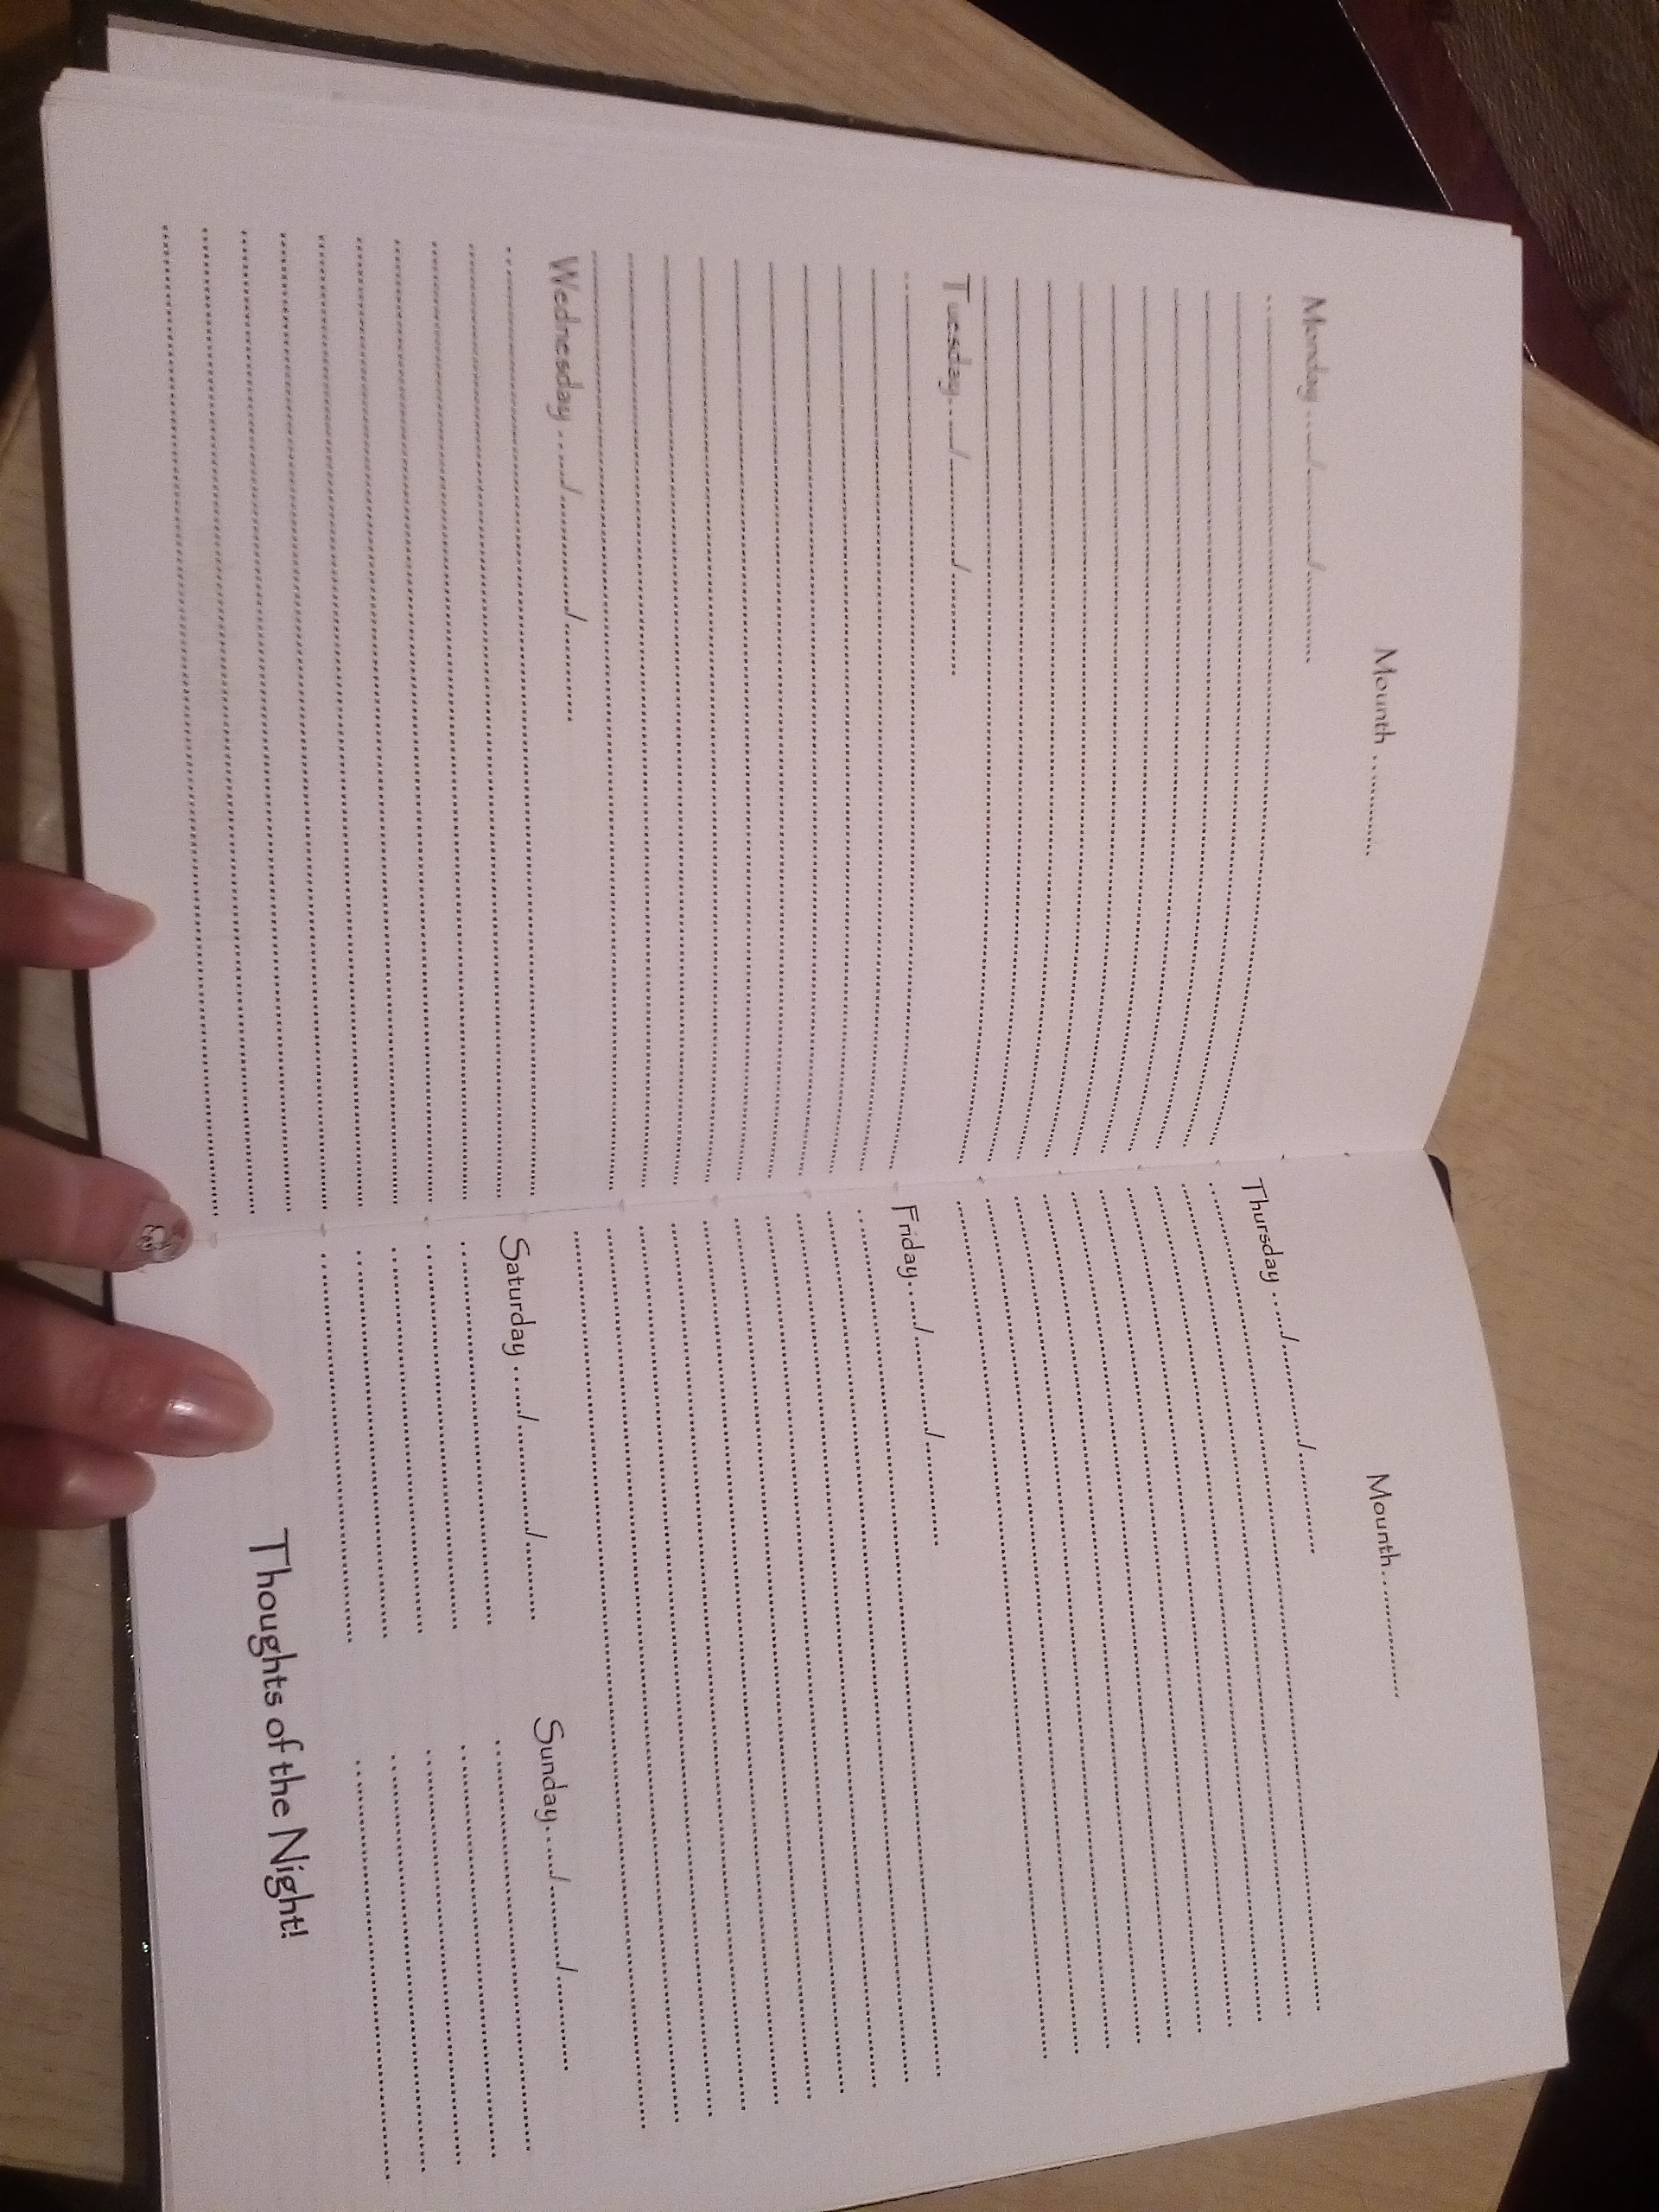 Mounth ..........
Monday ...../........../..........
Tuesday...../........../..........
Wednesday...../........../..........
Mounth..........
Thursday ...../........../..........
Friday...../........../..........
Saturday...../........../..........
Sunday...../........../..........
Thoughts of the Night!